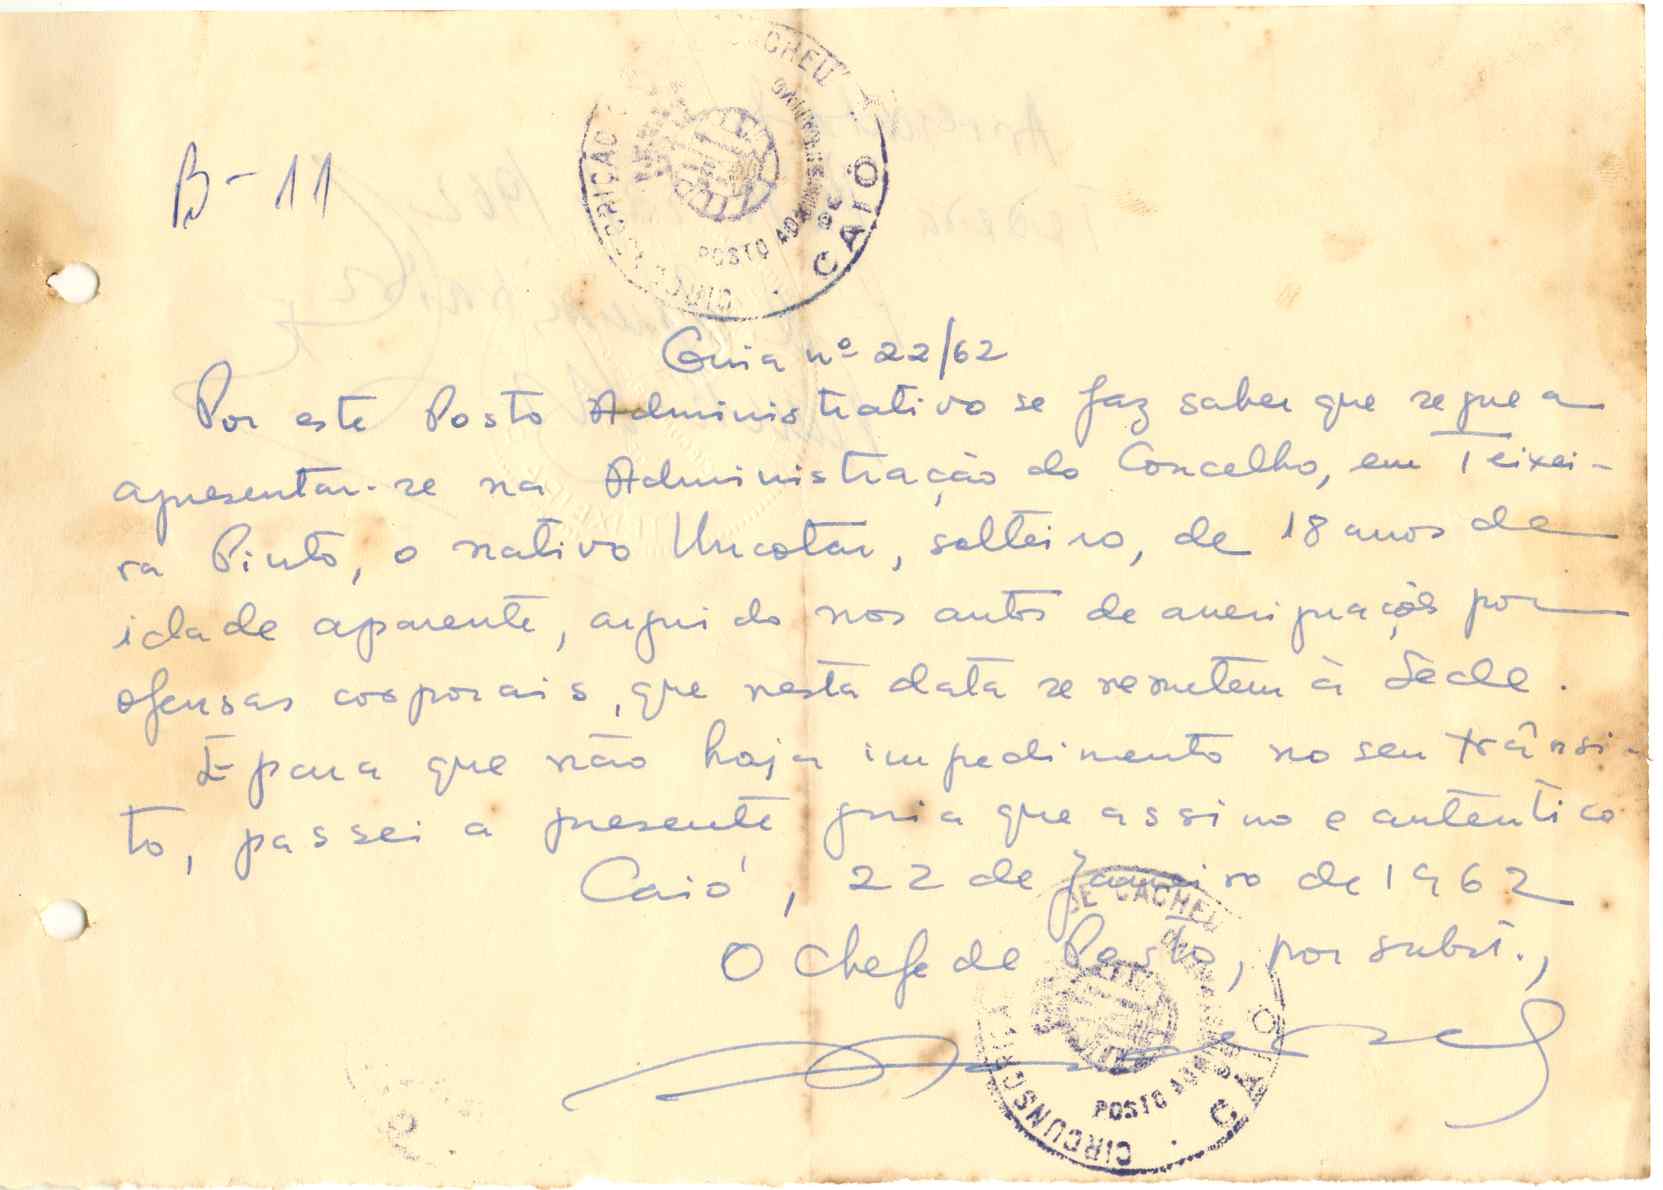 B-11
CIRCUNSCRIÇÃO CACHEU
POSTO ADMINISTRATIVO DE
CAIÓ
Guia nº 22/62
Por este Posto Administrativo se faz saber que segue a
apresentar-se na Administração do Concelho, em Teixei-
ra Pinto, o nativo Uncotar, solteiro, de 18 anos de
idade aparente, arguido nos autos de averiguações por
ofensas corporais, que nesta data se remetem à Séde.
E para que não haja impedimento no seu trânsi-
to, passei a presente guia que assino e autentico
Caió, 22 de Janeiro de 1962
O Chefe de Posto, por subst.,
CIRCUNSCRI DE CACHEU
POSTO ADM
CAIÓ